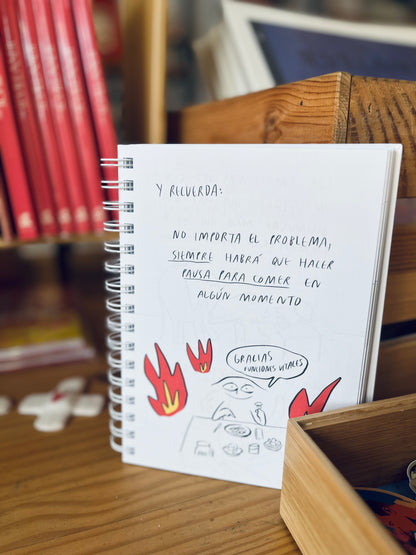 Y RECUERDA:
NO IMPORTA EL PROBLEMA,
SIEMPRE HABRÁ QUE HACER
PAUSA PARA COMER EN
ALGÚN MOMENTO
GRACIAS
FUNCIONES VITALES